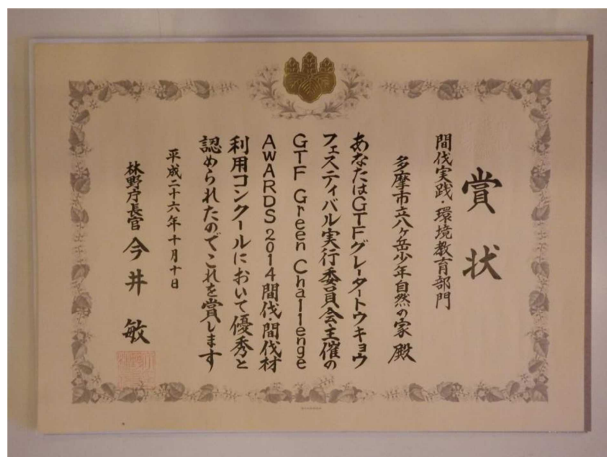 賞状
間伐実践・環境教育部門
多摩市立八ヶ岳少年自然の家 殿
あなたはGTFグレータートウキョウ
フェスティバル実行委員会主催の
GTF Green Challenge
AWARDS 2014間伐・間伐材
利用コンクールにおいて優秀と
認められたのでこれを賞します
平成二十六年十月十日
林野庁長官 今井 敏